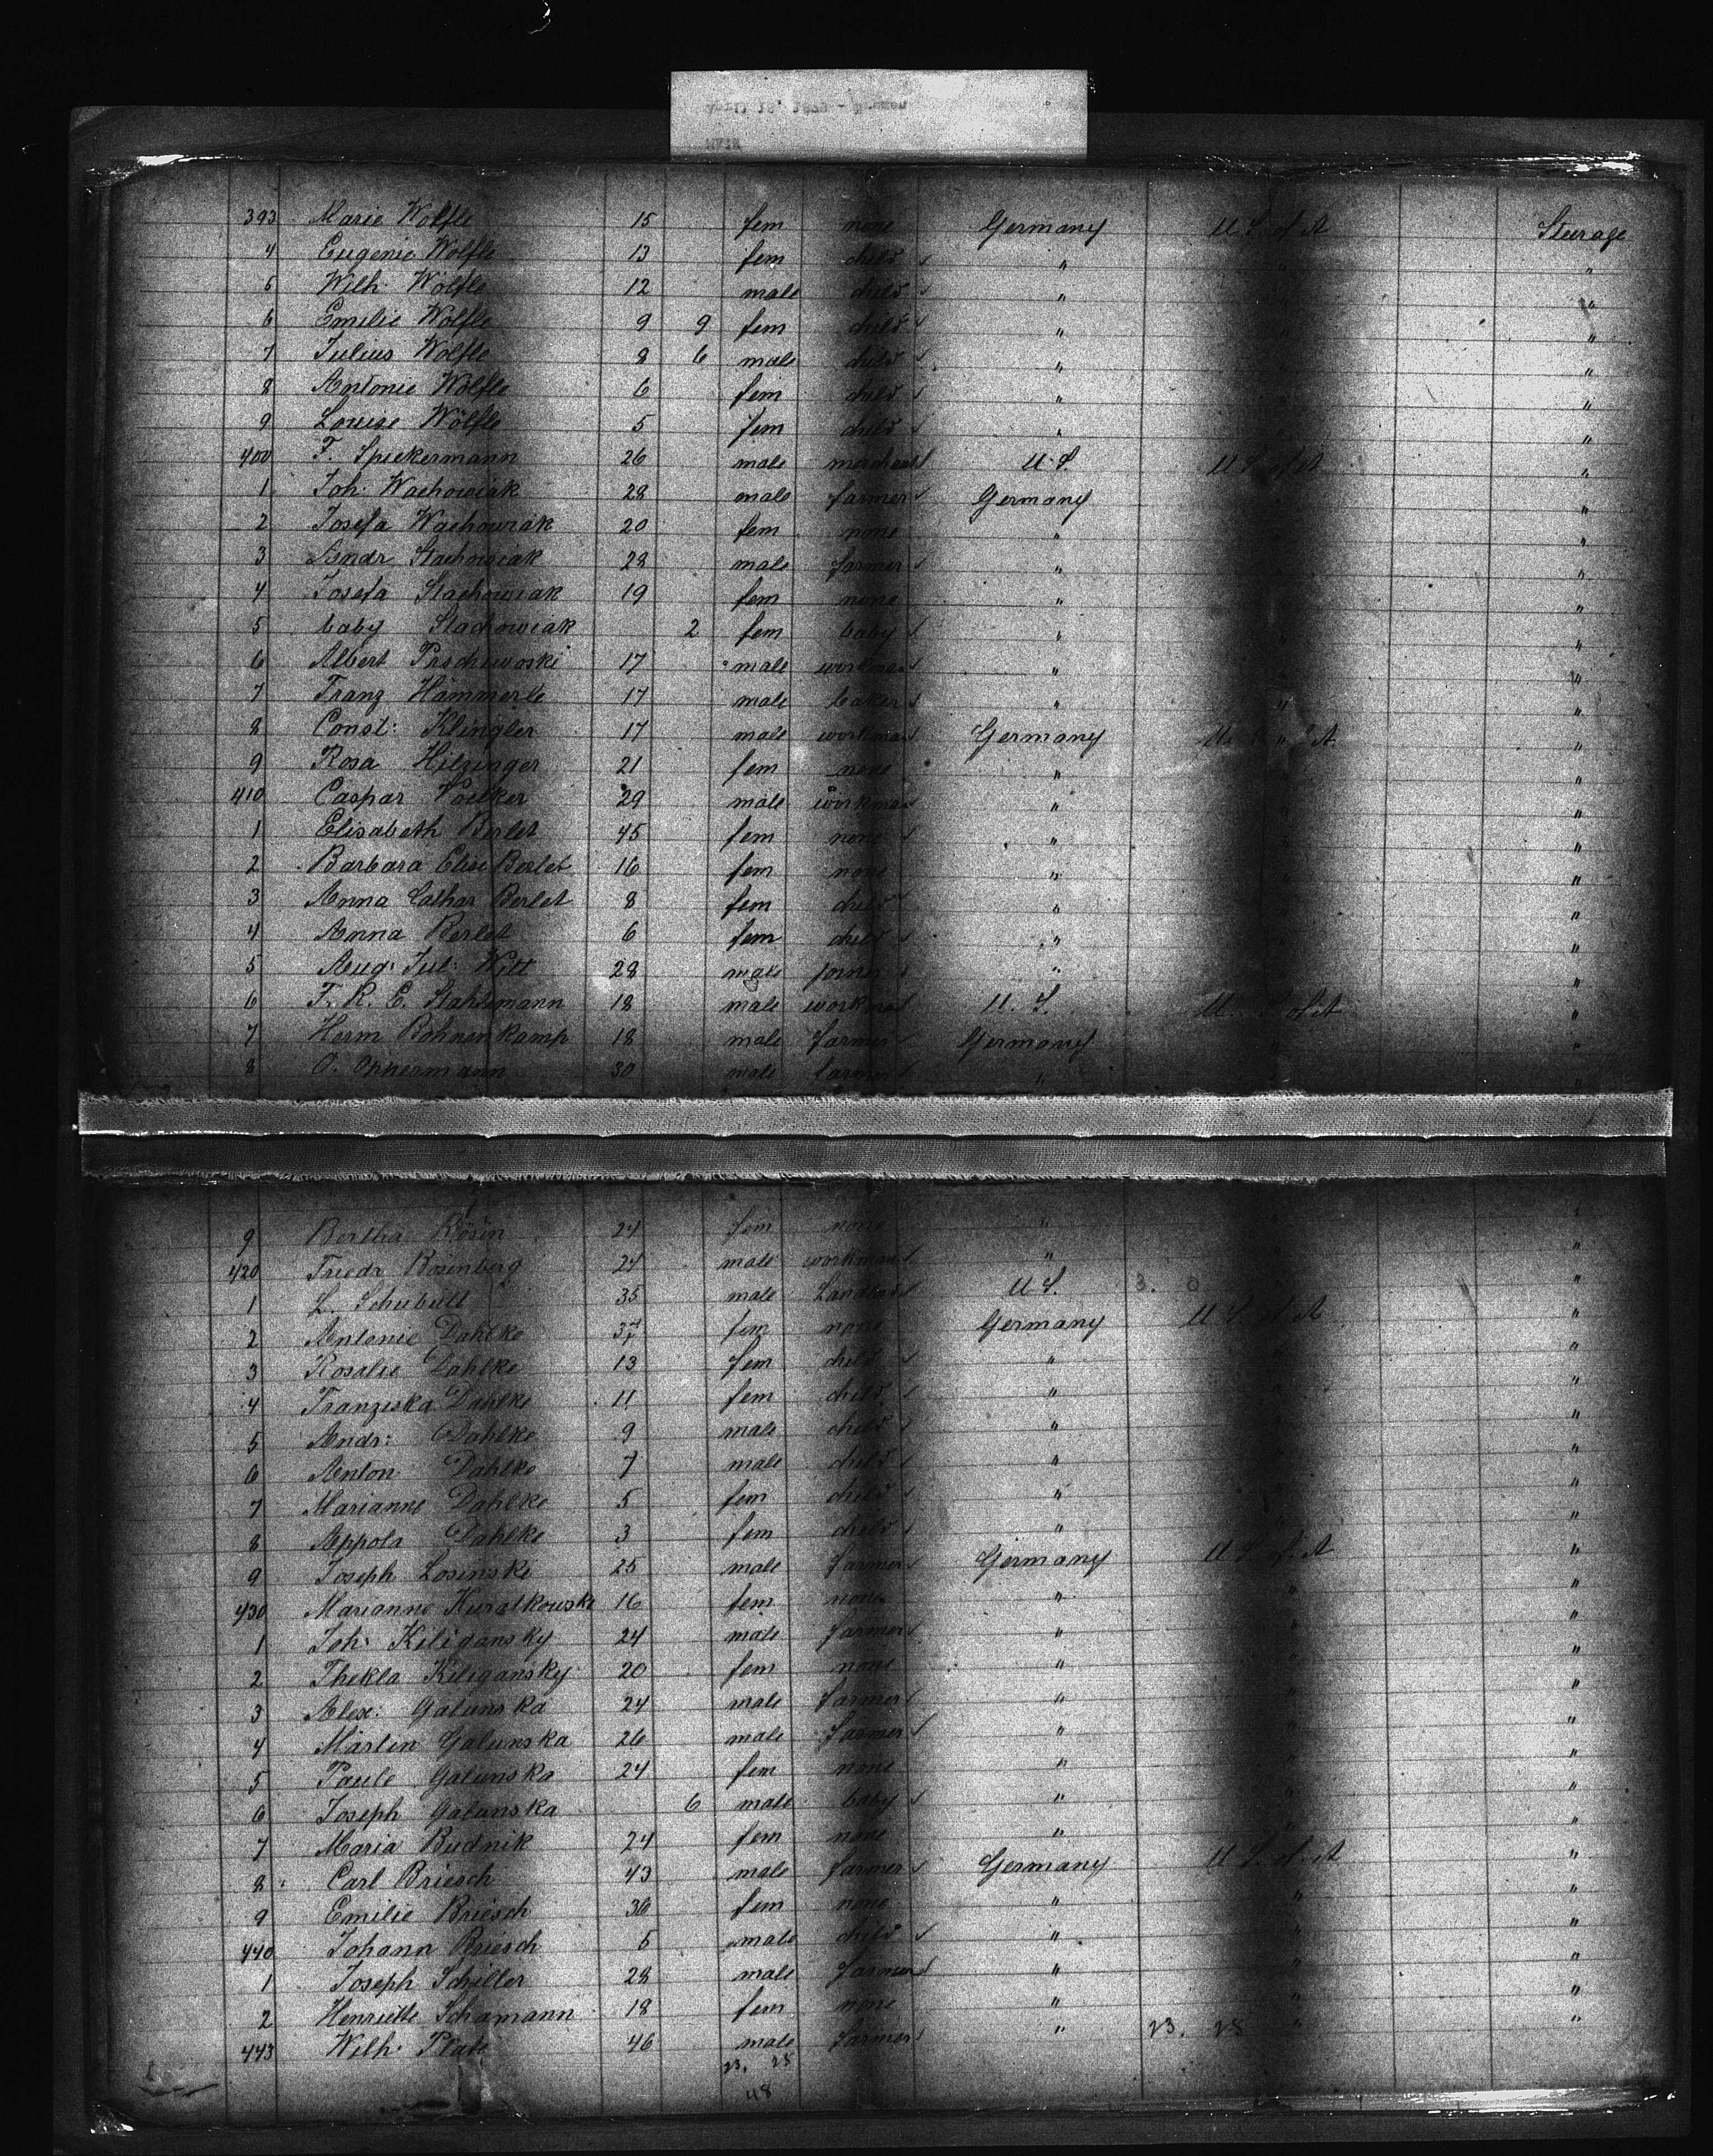 393 Marie Wölfle 15 fem none Germany U S. of A Steerage
4 Eugenie Wölfle 13 fem child " " "
5 Wilh. Wölfle 12 male child " " "
6 Emilie Wölfle 9 9 fem child " " "
7 Julius Wölfle 8 6 male child " " "
8 Antonie Wölfle 6 fem child " " "
9 Louise Wölfle 5 fem child " " "
400 F. Spiekermann 26 male merchant U. S. U S. of A "
1 Joh: Wachowiak 28 male farmer Germany "
2 Josefa Wachowiak 20 fem none " "
3 Andr Stachowiak 28 male farmer " "
4 Josefa Stachowiak 19 fem none " "
5 baby Stachowiak 2 fem baby " "
6 Albert 17 male workman " "
7 Franz Hämmerle 17 male baker " " "
8 Const: Klingler 17 male workman Germany U. S. of A "
9 Rosa Hilzinger 21 fem none " "
410 Caspar Voelker 29 male workman " "
1 Elisabeth Berlet 45 fem none " "
2 Barbara Elise Berlet 16 fem none " "
3 Anna Cathar Berlet 8 fem child " "
4 Anna Berlet 6 fem child " "
5 Aug: Jul: Witt 28 male " "
6 F. R. E. Stahlsmann 18 male workman U. S. U. S. of A "
7 Herm Bohnenkamp 18 male farmer Germany " "
8 O. Oppermann 30 male farmer " "
9 Bertha Rosin 24 fem none " " "
420 Friedr Rosenberg 24 male workman " " "
1 L. Schubult 35 male U S. 3. 0 "
2 Antonie Dahlke fem none Germany U S. of A "
3 Rosalie Dahlke 13 fem child " " "
4 Franziska Dahlke 11 fem child " " "
5 Andr: Dahlke 9 male child " " "
6 Anton Dahlke 7 male child " " "
7 Marianne Dahlke 5 fem child " " "
8 Appola Dahlke 3 fem child " " "
9 Joseph Losinski 25 male farmer Germany U S. of A "
430 Marianne Kuratkowski 16 fem none " " "
1 Joh: Kiligansky 24 male farmer " " "
2 Thekla Kiligansky 20 fem none " " "
3 Alex: Galunska 24 male farmer " " "
4 Martin Galunska 26 male farmer " " "
5 Paule Galunska 24 fem none " " "
6 Joseph Galunska 6 male baby " " "
7 Maria Budnik 24 fem none " " "
8 Carl Briesch 43 male farmer Germany U S. of A "
9 Emilie Briesch 36 fem none " " "
440 Johann Briesch 5 male child " " "
1 Joseph Schiller 28 male farmer " " "
2 Henriette Schamann 18 fem none " " "
443 Wilh. Plate 46 male farmer " 23. 28 " "
23. 28
48